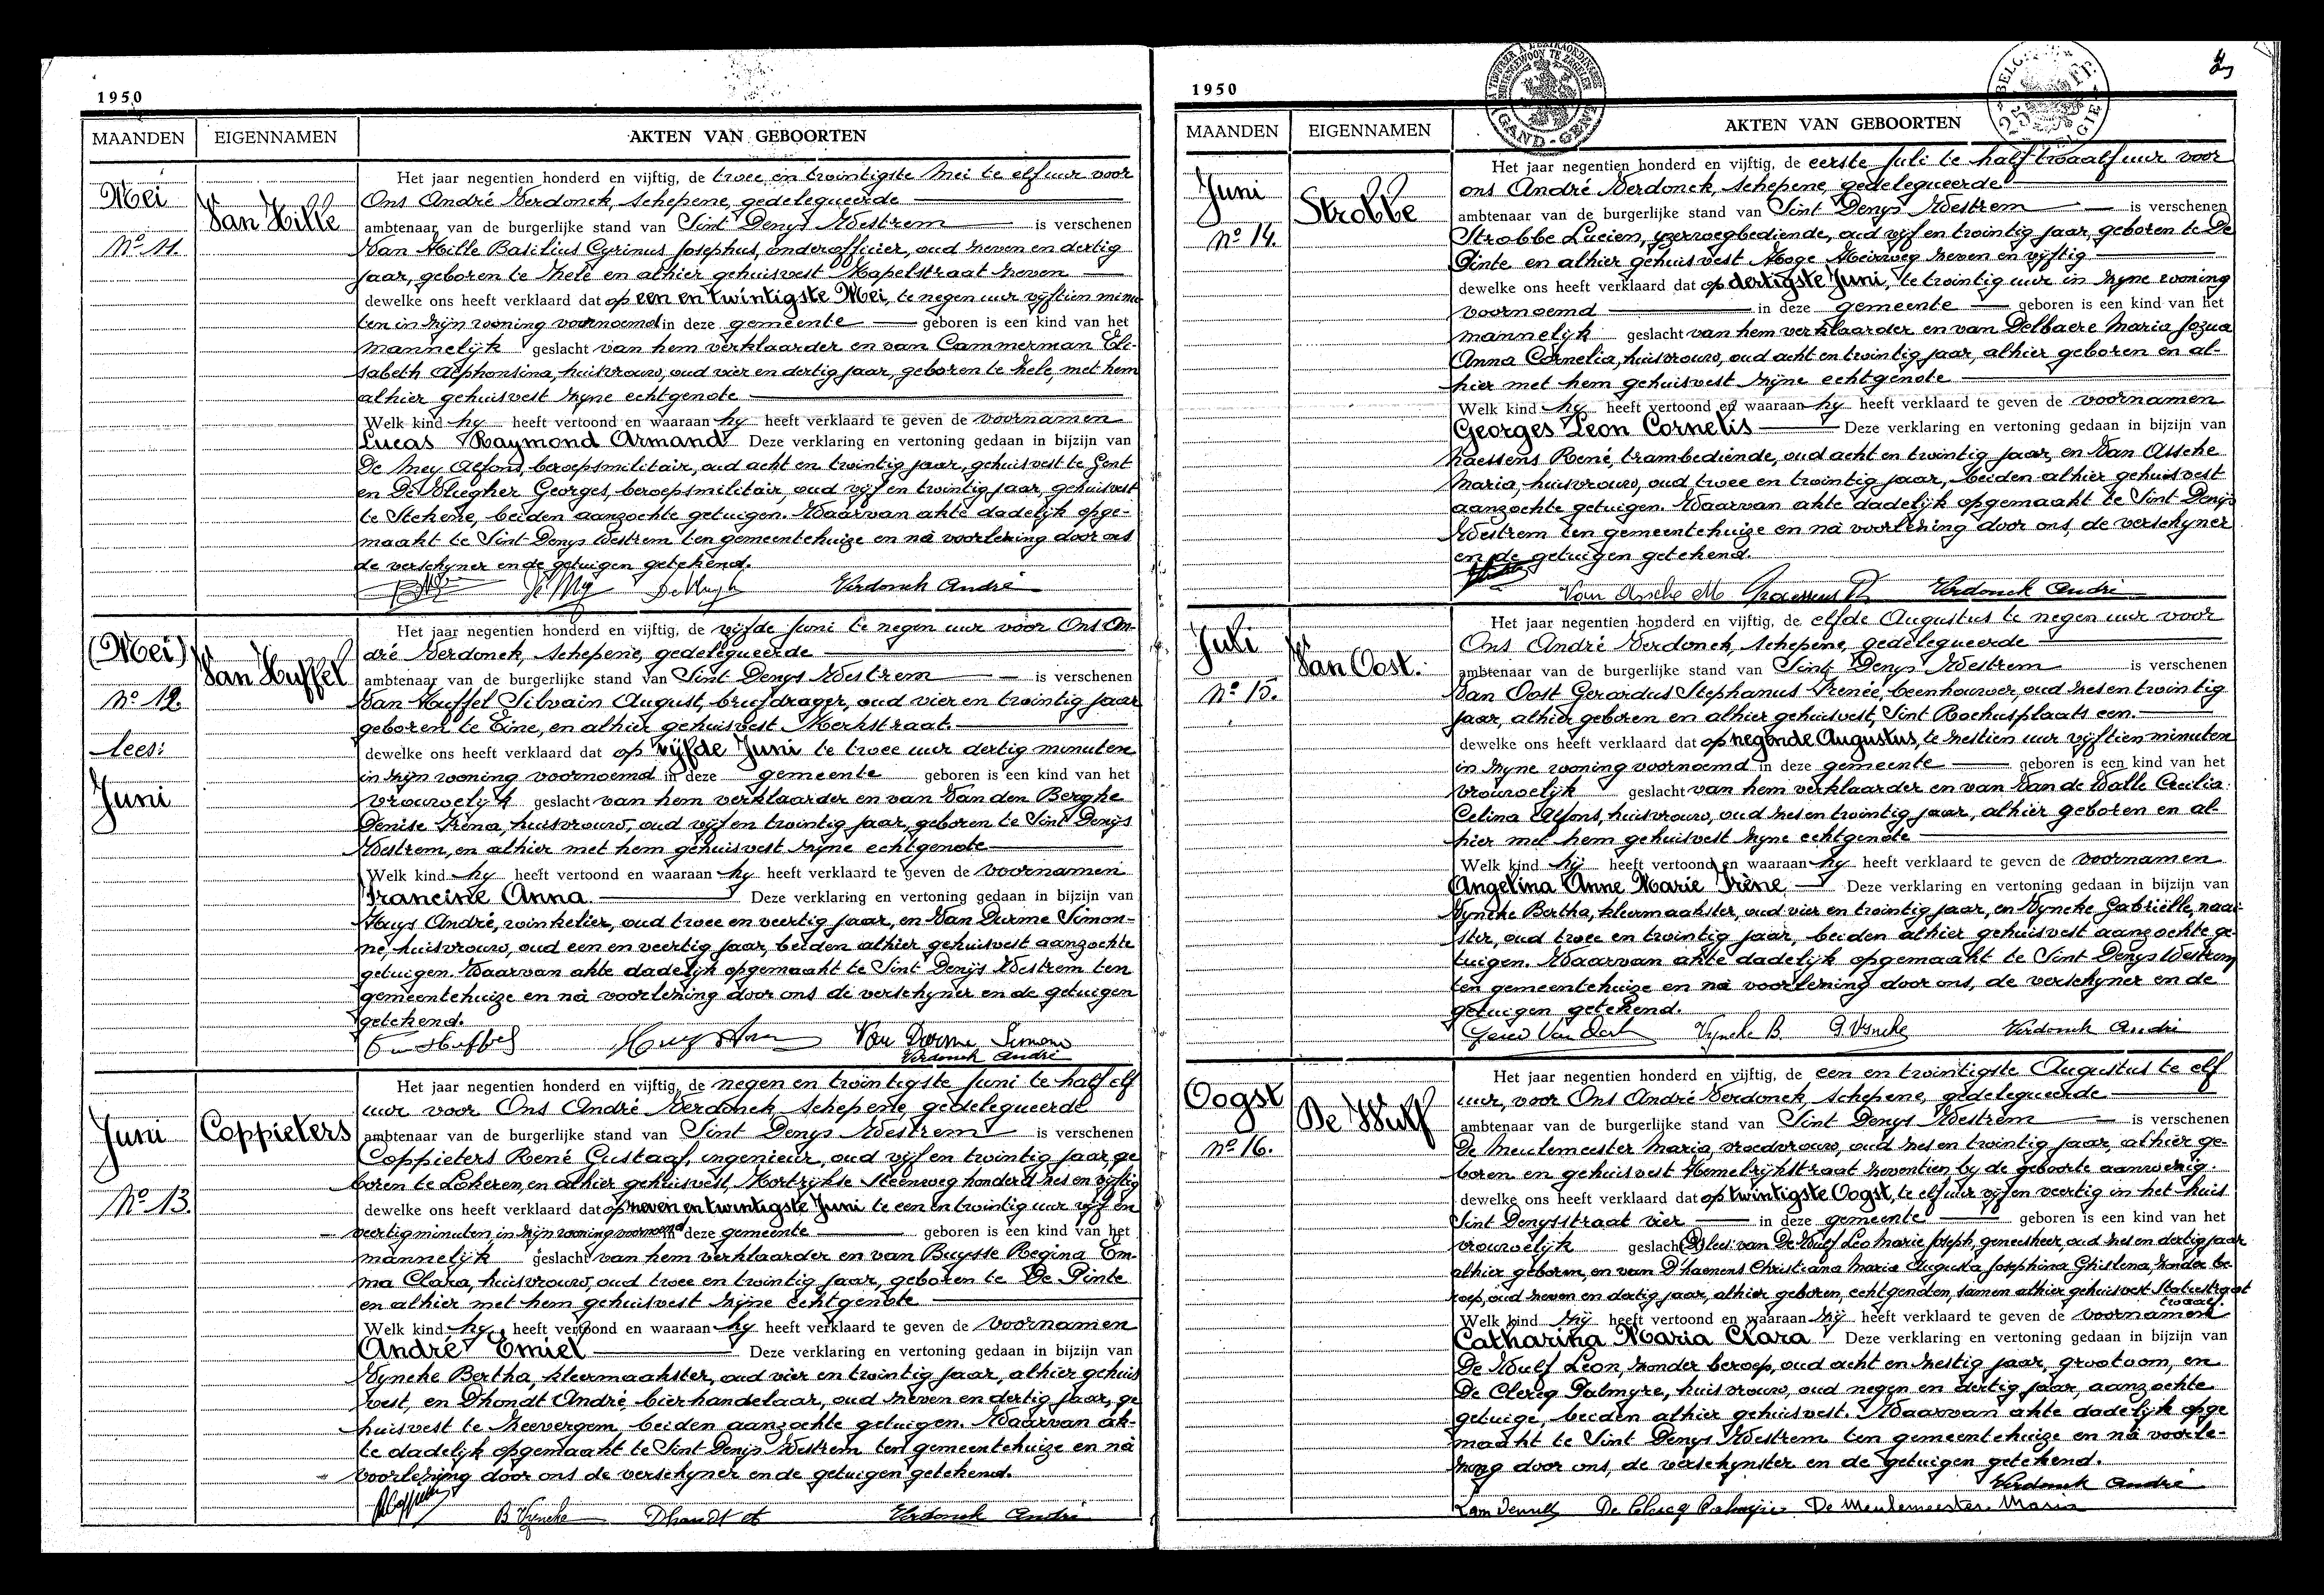 1950
MAANDEN EIGENNAMEN AKTEN VAN GEBOORTEN
Mei
Van Hille
No 11.
Het jaar negentien honderd en vijftig, de twee en twintigste Mei te elf uur voor
Ons André Verdonck, schepene, gedelegueerde
ambtenaar van de burgerlijke stand van Sint Denys Westrem is verschenen
Van Hille Basilius Cyrinus Josephus, onderofficier, oud zeven en dertig
jaar, geboren te Zele en alhier gehuisvest Kapelstraat zeven
dewelke ons heeft verklaard dat op een en twintigste Mei, te negen uur vijftien minu
ten in zijn woning voornoemd in deze gemeente geboren is een kind van het
mannelijk geslacht van hem verklaarder en van Cammerman Eli-
sabeth Alphonsina, huisvrouw, oud vier en dertig jaar, geboren te Zele, met hem
alhier gehuisvest zijne echtgenote
Welk kind hy heeft vertoond en waaraan hy heeft verklaard te geven de voornamen
Lucas Raymond Armand Deze verklaring en vertoning gedaan in bijzijn van
De Mey Alfons, beroepsmilitair, oud acht en twintig jaar, gehuisvest te Gent
en De Vliegher Georges, beroepsmilitair, oud vijf en twintig jaar, gehuisvest
te Stekene, beiden aanzochte getuigen. Waarvan akte dadelijk opge-
maakt te Sint Denys Westrem ten gemeentehuize en nà voorlezing door ons
de verschyner en de getuigen getekend.
Verdonck André
(Mei)
Van Huffel
No 12.
lees:
Juni
Het jaar negentien honderd en vijftig, de vijfde Juni te negen uur voor Ons An-
dré Verdonck, schepene, gedelegueerde
ambtenaar van de burgerlijke stand van Sint Denys Westrem is verschenen
Van Huffel Silvain August, briefdrager, oud vier en twintig jaar
geboren te Eine, en alhier gehuisvest Kerkstraat
dewelke ons heeft verklaard dat op vijfde Juni te twee uur dertig minuten
in zijn woning voornoemd in deze gemeente geboren is een kind van het
vrouwelijk geslacht van hem verklaarder en van Van den Berghe
Denise Irena, huisvrouw, oud vijf en twintig jaar, geboren te Sint Denijs
Westrem, en alhier met hem gehuisvest zijne echtgenote
Welk kind hy heeft vertoond en waaraan hy heeft verklaard te geven de voornamen
Francine Anna. Deze verklaring en vertoning gedaan in bijzijn van
Huys André, winkelier, oud twee en veertig jaar, en Van Durme Simon-
ne, huisvrouw, oud een en veertig jaar, beiden alhier gehuisvest aanzochte
getuigen. Waarvan akte dadelijk opgemaakt te Sint Denijs Westrem ten
gemeentehuize en nà voorlezing door ons de verschyner en de getuigen
getekend.
Van Durme Simone
Verdonck André
Juni
Coppieters
No 13.
Het jaar negentien honderd en vijftig, de negen en twintigste Juni te half elf
uur voor Ons André Verdonck, schepene, gedelegueerde
ambtenaar van de burgerlijke stand van Sint Denys Westrem is verschenen
Coppieters René Gustaaf, ingenieur, oud vijf en twintig jaar, ge
boren te Lokeren, en alhier gehuisvest, Kortrijkse Steenweg honderd zes en vijftig
dewelke ons heeft verklaard dat op zeven en twintigste Juni te een en twintig uur vijf en
veertig minuten, in zijn woning voornoemd in deze gemeente geboren is een kind van het
mannelijk geslacht van hem verklaarder en van Buysse Regina Em-
ma Clara, huisvrouw, oud twee en twintig jaar, geboren te De Pinte
en alhier met hem gehuisvest zijne echtgenote
Welk kind hy heeft vertoond en waaraan hy heeft verklaard te geven de voornamen
André Emiel Deze verklaring en vertoning gedaan in bijzijn van
Vyncke Bertha, kleermaakster, oud vier en twintig jaar, alhier gehuis
vest, en Dhondt André, bierhandelaar, oud zeven en dertig jaar, ge
huisvest te Zeevergem, beiden aanzochte getuigen. Waarvan ak-
te dadelijk opgemaakt te Sint Denijs Westrem ten gemeentehuize en nà
voorlezing door ons de verschyner en de getuigen getekend.
B Vyncke Dhondt A Verdonck André
1950
GAND - GENT
MAANDEN EIGENNAMEN AKTEN VAN GEBOORTEN
Juni
Strobbe
No 14.
Het jaar negentien honderd en vijftig, de eerste Juli te half twaalf uur voor
ons André Verdonck, schepene, gedelegueerde
ambtenaar van de burgerlijke stand van Sint Denys Westrem is verschenen
Strobbe Lucien, yzerwegbediende, oud vijf en twintig jaar, geboren te De
Pinte en alhier gehuisvest Hoge Heirweg zeven en vijftig
dewelke ons heeft verklaard dat op dertigste Juni, te twintig uur in zyne woning
voornoemd in deze gemeente geboren is een kind van het
mannelijk geslacht van hem verklaarder en van Delbaere Maria Jozua
Anna Cornelia, huisvrouw, oud acht en twintig jaar, alhier geboren en al-
hier met hem gehuisvest zijne echtgenote
Welk kind hy heeft vertoond en waaraan hy heeft verklaard te geven de voornamen
Georges Leon Cornelis Deze verklaring en vertoning gedaan in bijzijn van
Haessens René, trambediende, oud acht en twintig jaar, en Van Assche
Maria, huisvrouw, oud twee en twintig jaar, beiden alhier gehuisvest
aanzochte getuigen. Waarvan akte dadelijk opgemaakt te Sint Denijs
Westrem ten gemeentehuize en nà voorlezing door ons, de verschyner
en de getuigen getekend.
Van Assche M Verdonck André
Juli
Van Oost.
No 15.
Het jaar negentien honderd en vijftig, de elfde Augustus te negen uur voor
Ons André Verdonck, schepene, gedelegueerde
ambtenaar van de burgerlijke stand van Sint Denys Westrem is verschenen
Van Oost Gerardus Stephanus Irenée, beenhouwer, oud zes en twintig
jaar, alhier geboren en alhier gehuisvest, Sint Rochusplaats een.
dewelke ons heeft verklaard dat op negende Augustus, te zestien uur vijftien minuten
in zyne woning voornoemd in deze gemeente geboren is een kind van het
vrouwelijk geslacht van hem verklaarder en van Van de Walle Cecilia
Celina Alfons, huisvrouw, oud zes en twintig jaar, alhier geboren en al-
hier met hem gehuisvest zyne echtgenote
Welk kind hij heeft vertoond en waaraan hy heeft verklaard te geven de voornamen
Angelina Anne Marie Irène Deze verklaring en vertoning gedaan in bijzijn van
Vyncke Bertha, kleermaakster, oud vier en twintig jaar, en Vyncke Gabriëlle, naai-
ster, oud twee en twintig jaar, beiden alhier gehuisvest aanzochte ge-
tuigen. Waarvan akte dadelijk opgemaakt te Sint Denys Westrem
ten gemeentehuize en nà voorlezing door ons, de verschyner en de
getuigen getekend.
Gerard Van Oost Vyncke B. G. Vyncke Verdonck André
Oogst
De Wulf
No 16.
Het jaar negentien honderd en vijftig, de een en twintigste Augustus te elf
uur, voor Ons André Verdonck, schepene, gedelegueerde
ambtenaar van de burgerlijke stand van Sint Denys Westrem is verschenen
De Meulemeester Maria, vroedvrouw, oud zes en twintig jaar, alhier ge-
boren en gehuisvest Hemelrijkstraat zeventien by de geboorte aanwezig
dewelke ons heeft verklaard dat op twintigste Oogst, te elf uur vijf en veertig in het huis
Sint Denysstraat vier in deze gemeente geboren is een kind van het
vrouwelijk geslacht lees: van De Wulf Leo Marie Joseph, geneesheer, oud zes en dertig jaar
alhier geboren, en van D'haenens Christiana Maria Augusta Josephina Ghislena, zonder be-
roep, oud zeven en dertig jaar, alhier geboren, echtgenoten, samen alhier gehuisvest Statiestraat
twaalf.
Welk kind zij heeft vertoond en waaraan zij heeft verklaard te geven de voornamen
Catharina Maria Clara Deze verklaring en vertoning gedaan in bijzijn van
De Wulf Leon, zonder beroep, oud acht en zestig jaar, grootoom, en
De Clercq Palmyre, huisvrouw, oud negen en dertig jaar, aanzochte
getuige, beiden alhier gehuisvest. Waarvan akte dadelijk opge
maakt te Sint Denys Westrem ten gemeentehuize en nà voorle-
zing door ons, de verschynster en de getuigen getekend.
Verdonck André
De Clercq Palmyre De Meulemeester Maria